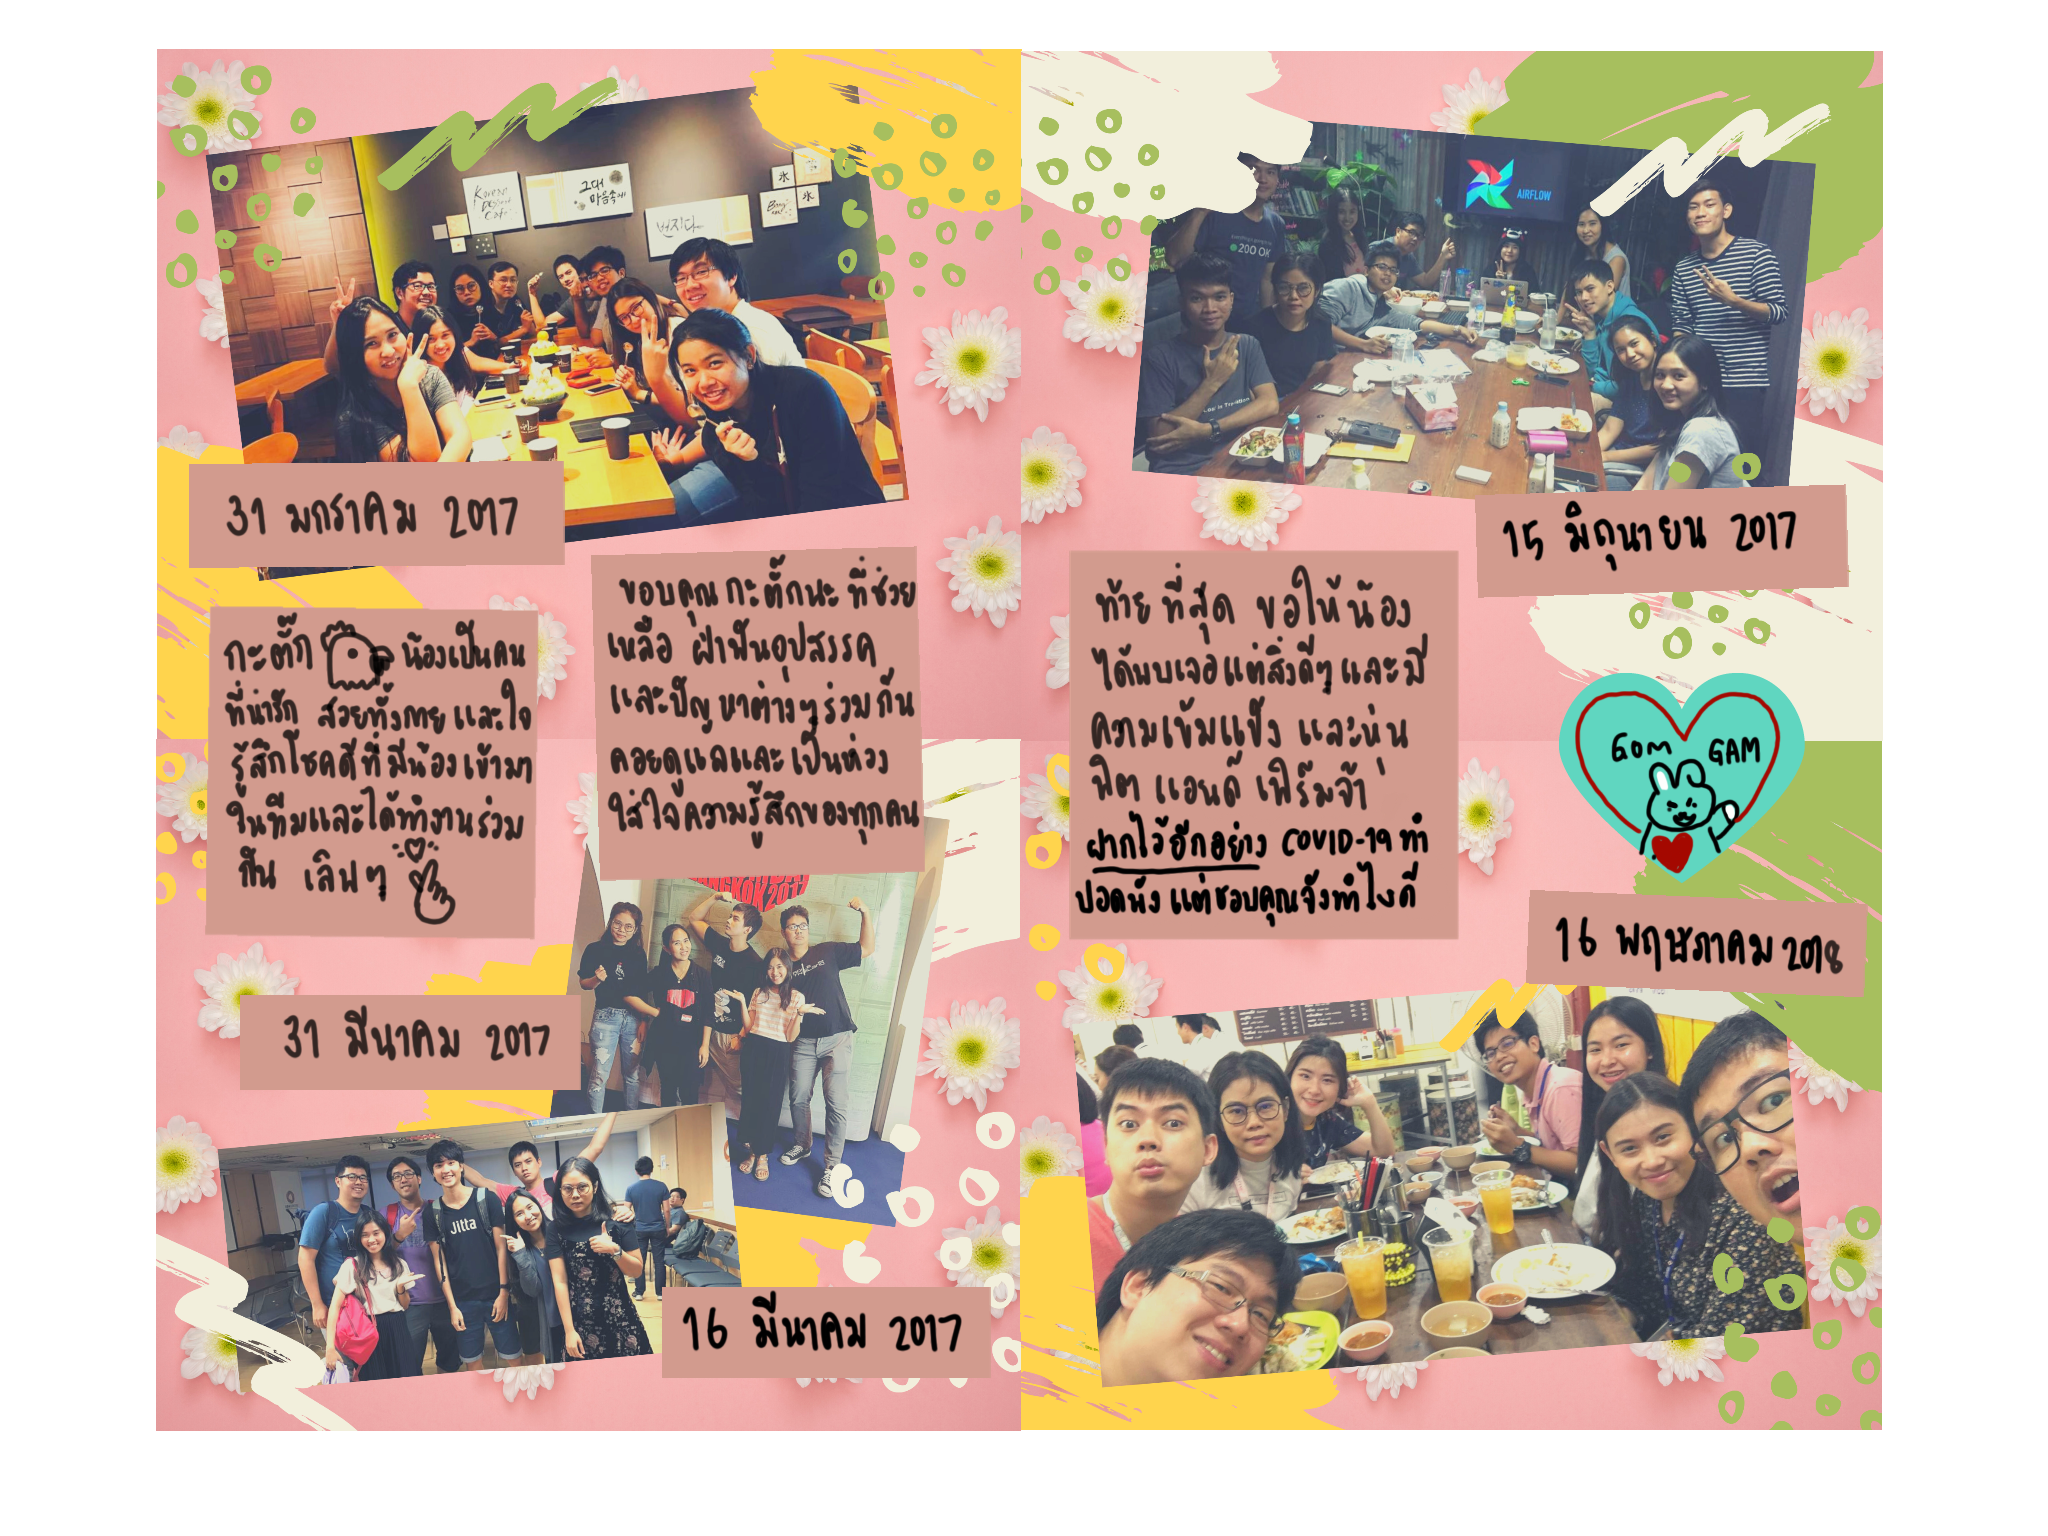 Korean
Dessert
Cafe
그대
마음속에
번지다
氷
氷
31 มกราคม 2017
กะตั๊ก น้องเป็นคน
ที่น่ารัก สวยทั้งกายและใจ
รู้สึกโชคดีที่มีน้องเข้ามา
ในทีมและได้ทำงานร่วม
กัน เลิฟๆ
ขอบคุณกะตั๊กนะที่ช่วย
เหลือ ฝ่าฟันอุปสรรค
และปัญหาต่างๆร่วมกัน
คอยดูแลและเป็นห่วง
ใส่ใจความรู้สึกของทุกคน
31 มีนาคม 2017
Jitta
16 มีนาคม 2017
AIRFLOW
200 OK
15 มิถุนายน 2017
ท้ายที่สุด ขอให้น้อง
ได้พบเจอแต่สิ่งดีๆและมี
ความเข้มแข็ง และหุ่น
ฟิต แอนด์ เฟิร์มจ้า
ฝากไว้อีกอย่าง COVID-19 ทำ
ปอดพัง แต่ชอบคุณจังทำไงดี
GOM GAM
16 พฤษภาคม 2018